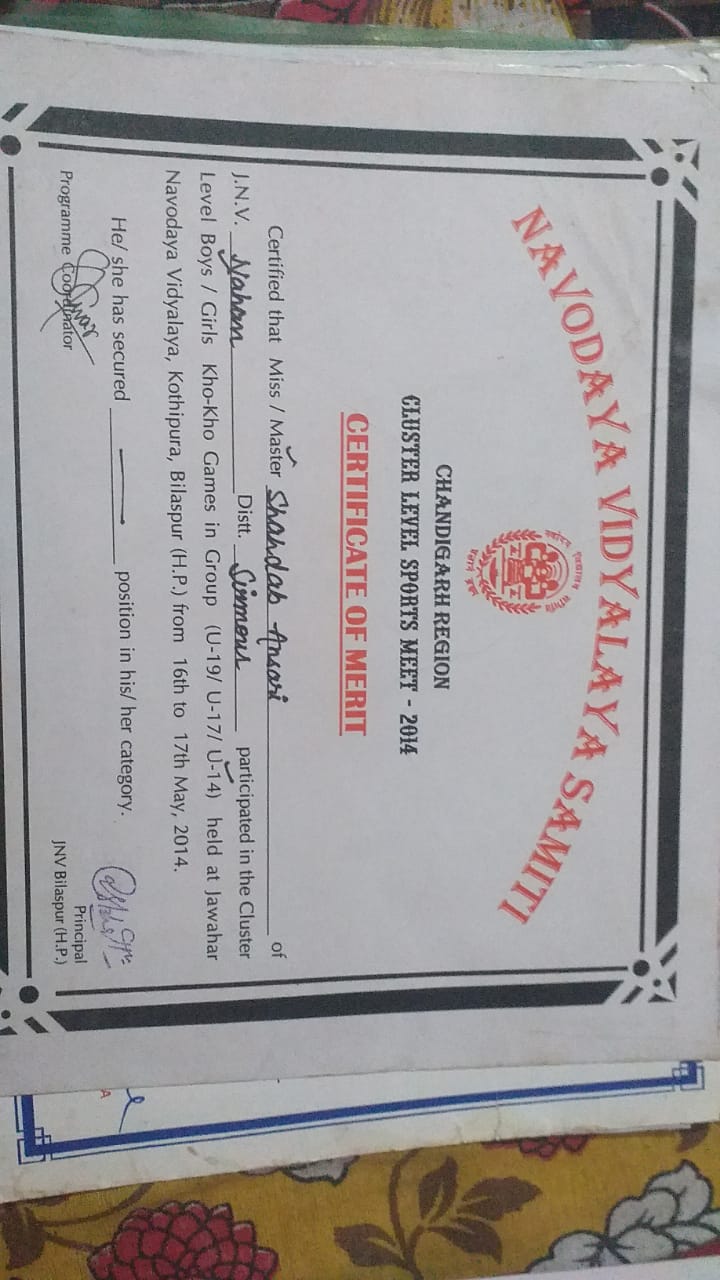 NAVODAYA VIDYALAYA SAMITI
CHANDIGARH REGION
CLUSTER LEVEL SPORTS MEET - 2014
CERTIFICATE OF MERIT
Certified that Miss / Master Shahdab Ansari of
J.N.V. Nahan Distt. Sirmour participated in the Cluster
Level Boys / Girls Kho-Kho Games in Group (U-19/ U-17/ U-14) held at Jawahar
Navodaya Vidyalaya, Kothipura, Bilaspur (H.P.) from 16th to 17th May, 2014.
He/ she has secured — position in his/ her category.
Programme Coordinator
Principal
JNV Bilaspur (H.P.)
A